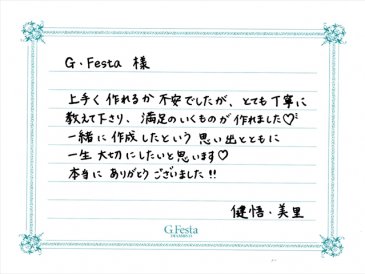 G・Festa 様
上手く作れるか不安でしたが、とても丁寧に
教えて下さり、満足のいくものが作れました♡
一緒に作成したという思い出とともに
一生大切にしたいと思います♡
本当にありがとうございました!!
健悟・美里
G.Festa